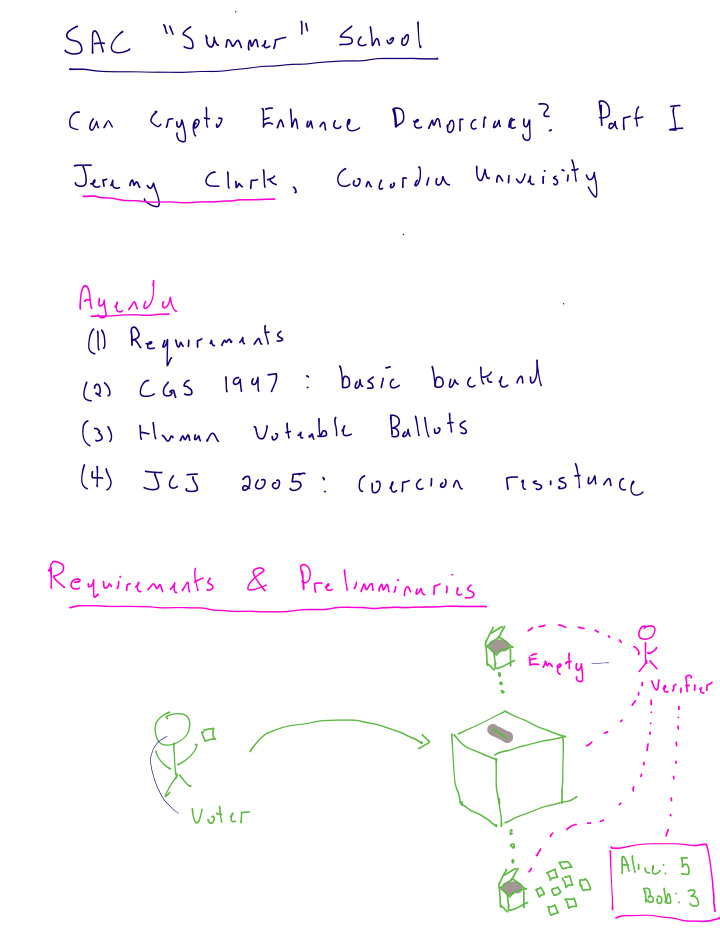 SAC "Summer" School
Can Crypto Enhance Demorcracy? Part I
Jeremy Clark, Concordia University
Agenda
(1) Requirements
(2) CGS 1997 : basic backend
(3) Human Voteable Ballots
(4) JCJ 2005 : coercion resistance
Requirements & Prelimminaries
Empty
Verifier
Voter
Alice: 5
Bob: 3